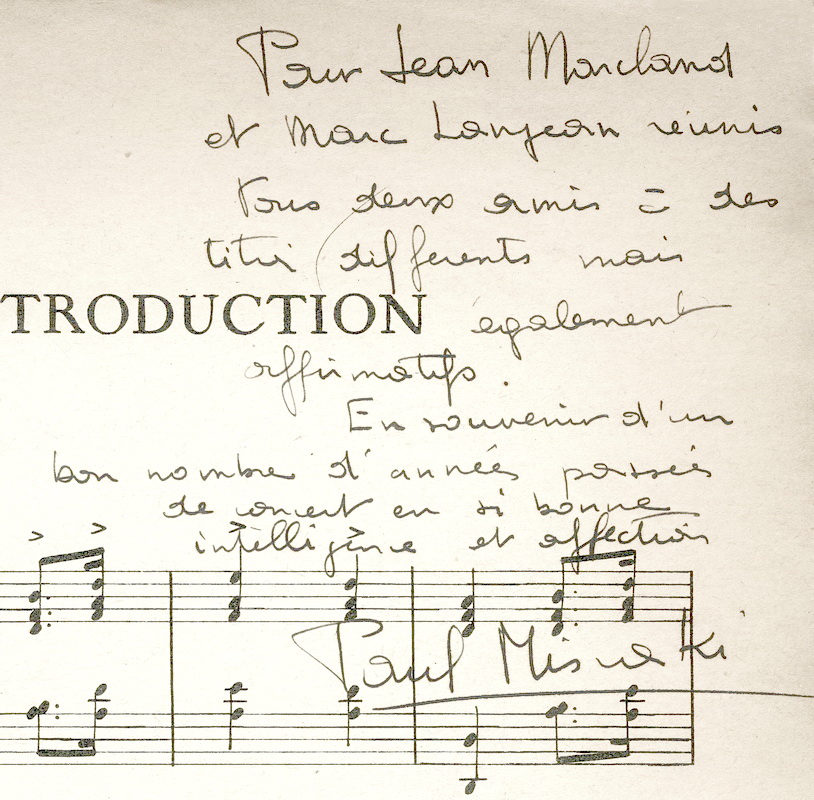 Pour Jean Marcland
et Marc Lanjean réunis
tous deux amis à des
titres différents mais
TRODUCTION également
affirmatifs.
En souvenir d'un
bon nombre d'années passées
de concert en si bonne
intelligence et affection
Paul Misraki